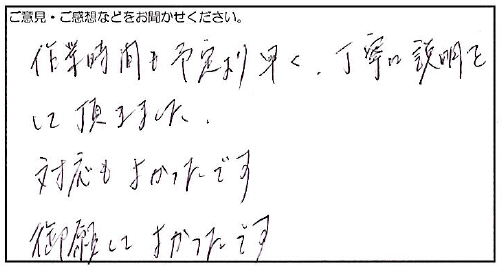 ご意見・ご感想などをお聞かせください。
作業時間も予定より早く、丁寧に説明を
して頂きました。
対応もよかったです
御願してよかったです